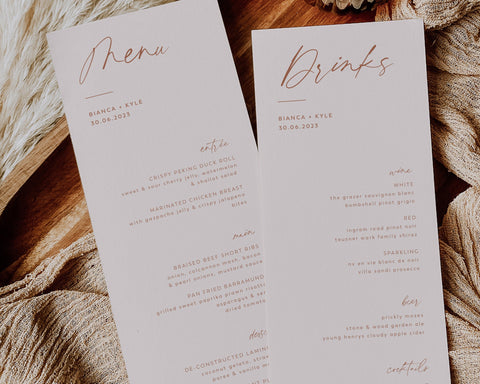 Menu
BIANCA + KYLE
30.06.2023
entrée
CRISPY PEKING DUCK ROLL
sweet & sour cherry jelly, watermelon
& shallot salad
MARINATED CHICKEN BREAST
with gazpacho jelly & crispy jalapeno
bites
main
BRAISED BEEF SHORT RIBS
onion, colcannon mash, bacon
& pearl onions, mustard sauce
PAN FRIED
grilled sweet paprika prawn
asparagus &
dried tomato
DE-CONSTRUCTED
coconut gelato,
Drinks
BIANCA + KYLE
30.06.2023
wine
WHITE
the grazer sauvignon blanc
bombshell pinot grigio
RED
ingram road pinot noir
teusner wark family shiraz
SPARKLING
nv en vie blanc de noir
villa sandi prosecco
beer
prickly moses
stone & wood garden ale
young henrys cloudy apple cider
cocktails